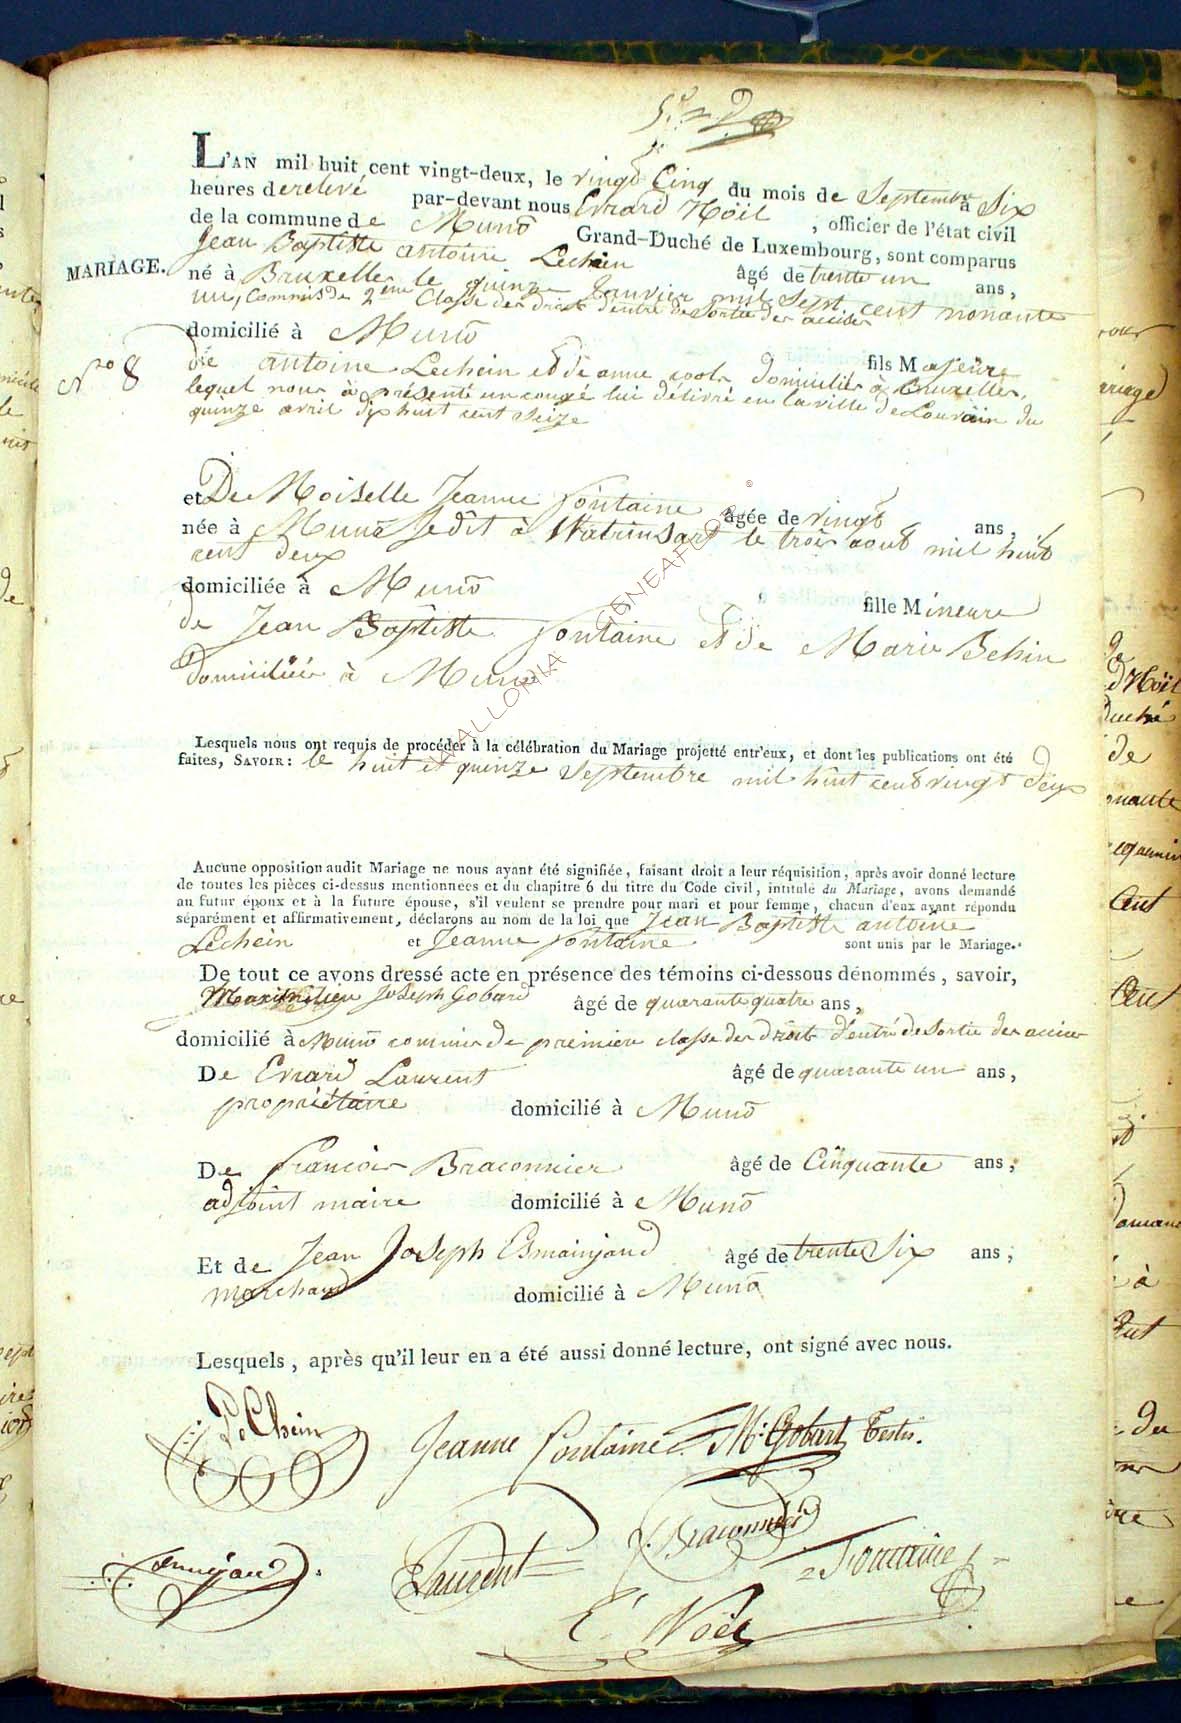 L'AN mil huit cent vingt-deux, le vingt Cinq du mois de Septembre à Six
heures de relevé par-devant nous Evrard Nöel, officier de l'état civil
de la commune de Muno Grand-Duché de Luxembourg, sont comparus
Jean Baptiste antoine Lechein âgé de trente un ans,
MARIAGE.
né à Bruxelles le quinze Janvier mil Sept cent nonante
un, Commis de 2eme Classe des droits d'entré de Sortie des accises
domicilié à Muno fils Majeure
No 8
de antoine Lechein et de anne domiciliés à Bruxelles,
lequel nous à présenté un congé lui délivré en la ville de Louvain du
quinze avril dix huit cent Seize
et DeMoiselle Jeanne fontaine âgée de vingt ans,
née à Muno Jedit à Watrinsart le trois aout mil huit
cent deux
domiciliée à Muno fille Mineure
de Jean Baptiste fontaine Et de Marie Behin
domiciliés à Muno
WALLONIA GENEAFLOR ©
Lesquels nous ont requis de procéder à la célébration du Mariage projetté entr'eux, et dont les publications ont été
faites, SAVOIR: le huit et quinze Septembre mil huit cent vingt Deux
Aucune opposition audit Mariage ne nous ayant été signifiée, faisant droit a leur réquisition, après avoir donné lecture
de toutes les pièces ci-dessus mentionnées et du chapitre 6 du titre du Code civil, intitulé du Mariage, avons demandé
au futur époux et à la future épouse, s'il veulent se prendre pour mari et pour femme, chacun d'eux ayant répondu
séparément et affirmativement, déclarons au nom de la loi que Jean Baptiste antoine
Lechein et Jeanne fontaine sont unis par le Mariage.
De tout ce avons dressé acte en présence des témoins ci-dessous dénommés, savoir,
Maximilien Joseph Gobard âgé de quarante quatre ans,
domicilié à Muno commis de premiere classe des Droits d'entré de Sortie des accises
De Evrard Laurent âgé de quarante un ans,
propriétaire domicilié à Muno
De francois Braconnier âgé de Cinquante ans,
adjoint maire domicilié à Muno
Et de Jean Joseph Esmainjaud âgé de trente Six ans,
marchand domicilié à Muno
Lesquels, après qu'il leur en a été aussi donné lecture, ont signé avec nous.
LeChein
Jeanne fontaine
M: Gobart Testis.
Braconnier
E Laurent
Fontaine
E. Noël